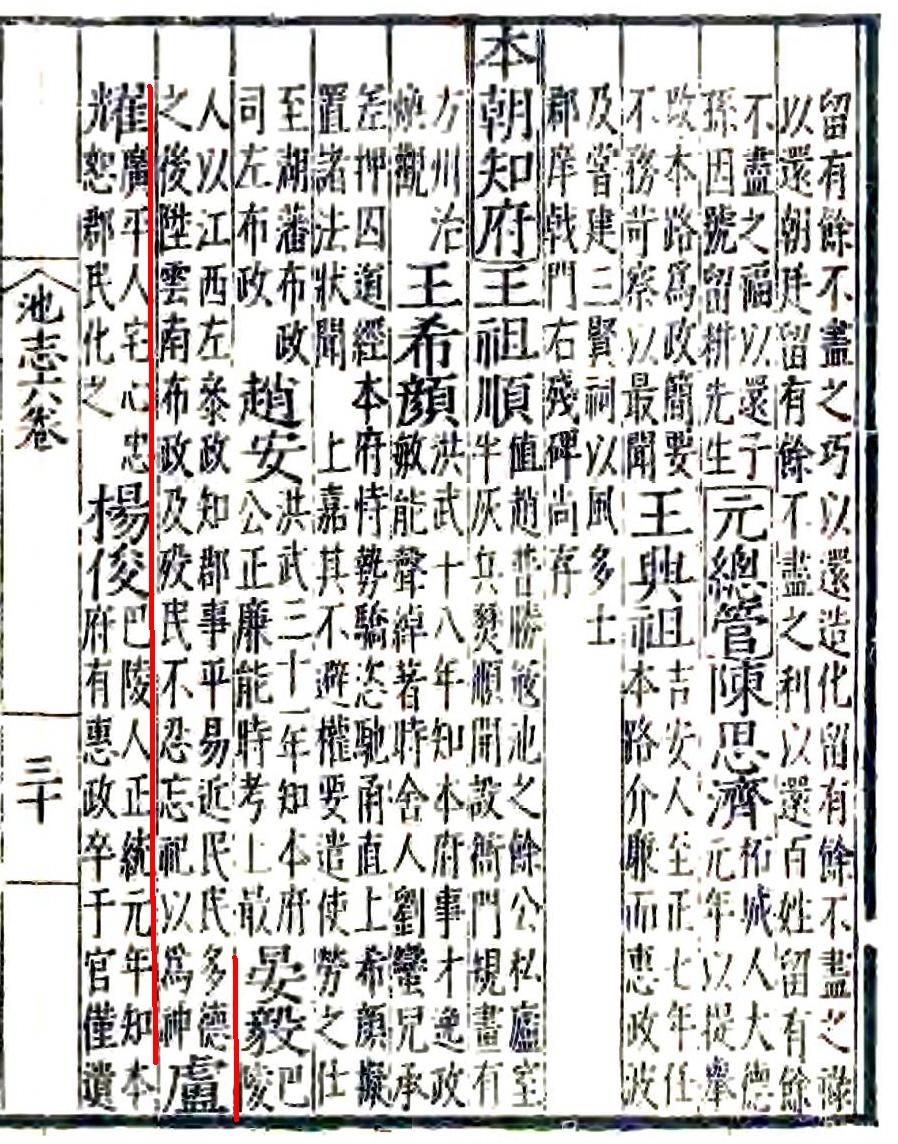 留有餘不盡之巧以還造化留有餘不盡之祿
以還朝廷留有餘不盡之利以還百姓留有餘
不盡之福以還子
孫因號留耕先生
元總管陳思濟
柘城人大德
元年以提舉
改本路爲政簡要
不務苛察以最聞
王興祖
吉安人至正七年任
本路介廉而惠政波
及嘗建三賢祠以風多士
郡庠戟門右殘碑尚存
本朝知府王祖順
值趙普勝寇池之餘公私廬室
半灰兵燹順開設衙門規畫有
方州治
煥觀
王希顔
洪武十八年知本府事才逸政
敏能聲綽著時舍人劉鑾兒承
差押囚道經本府恃勢驕恣馳甬直上希顔擬
置諸法狀聞 上嘉其不避權要遣使勞之仕
至湖藩布政
司左布政
趙安
洪武三十一年知本府
公正廉能時考上最
晏毅
巴
陵
人以江西左叅政知郡事平易近民民多德
之後陞雲南布政及歿民不忍忘祀以爲神
盧
耀
廣平人宅心忠
恕郡民化之
楊俊
巴陵人正統元年知本
府有惠政卒于官僅遺
池志六卷
三十